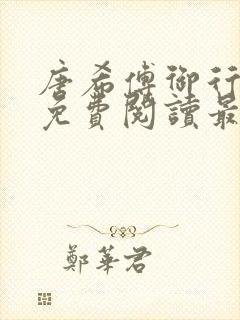 唐希傅御行
免費閱讀最
鄭華君